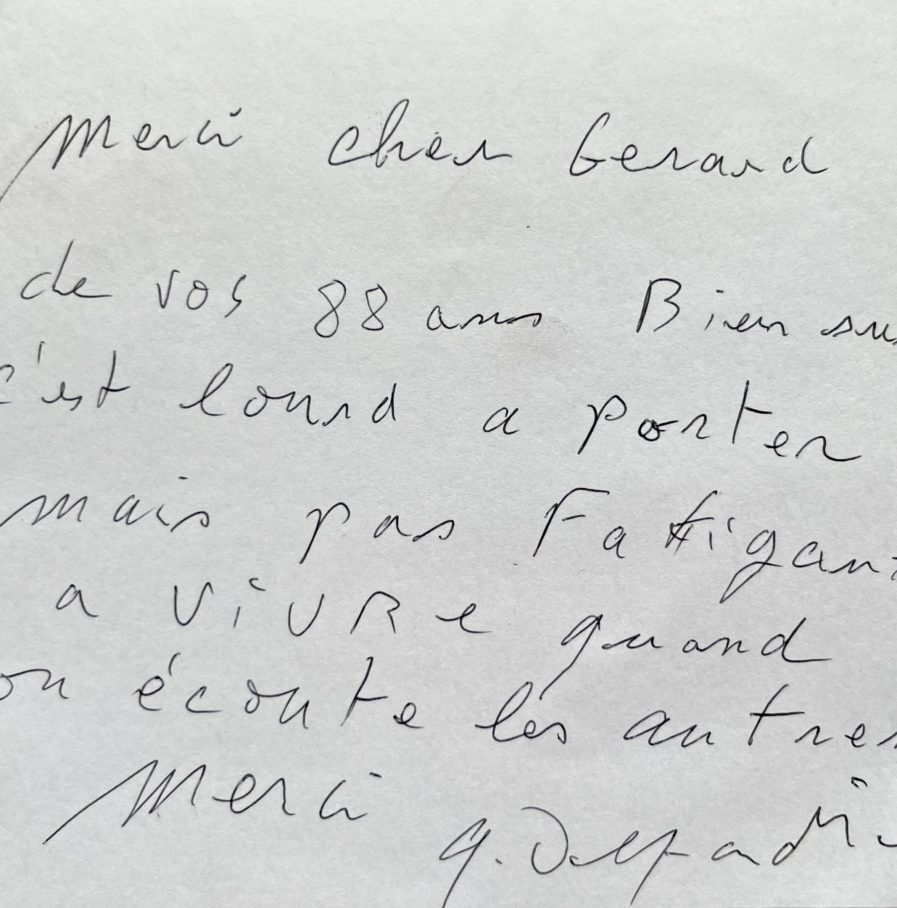 Merci cher Gerard
de vos 88 ans Bien su
c'est lourd a porter
mais pas Fatigant
a ViVRe quand
on écoute les autres
Merci G. Depardi